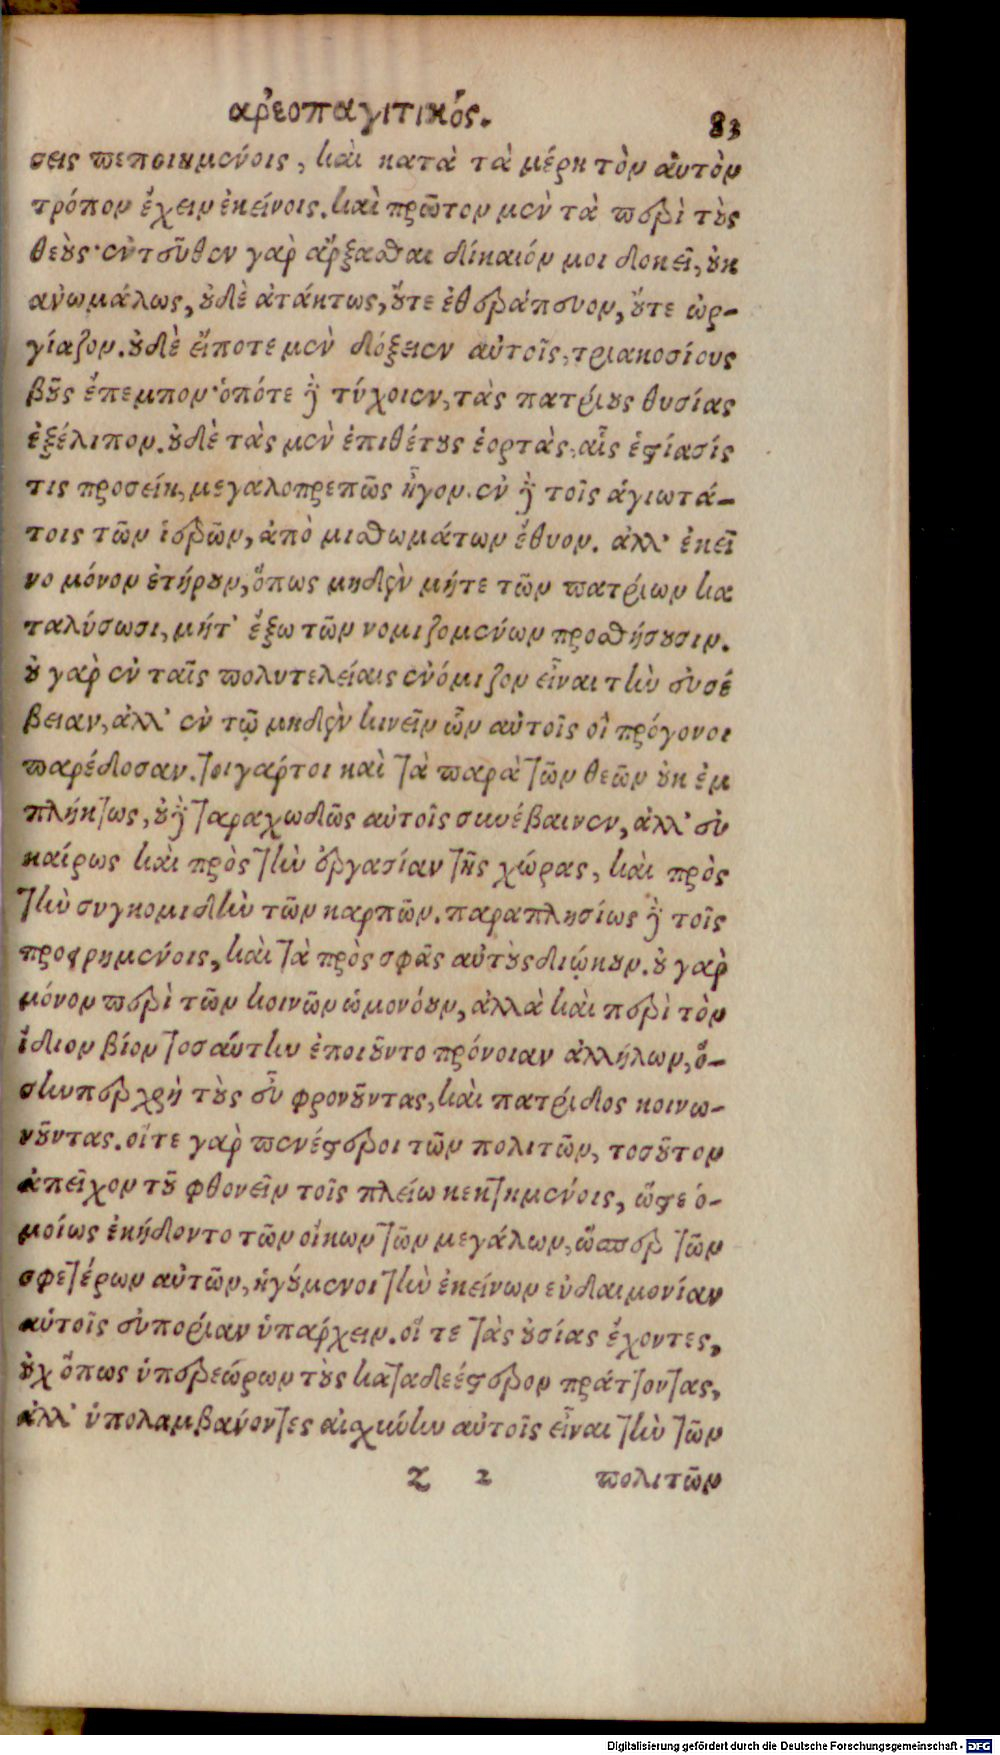 ἀρεοπαγιτικός. 83
σεις πεποιημένοις, καὶ κατὰ τὰ μέρη τὸν αὐτὸν
τρόπον ἔχειν ἐκείνοις. καὶ πρῶτον μὲν τὰ περὶ τοὺς
θεούς· ἐντεῦθεν γὰρ ἄρξασθαι δίκαιόν μοι δοκεῖ, οὐκ
ἀνωμάλως, οὐδὲ ἀτάκτως, οὔτε ἐθεράπευον, οὔτε ὠρ-
γίαζον. οὐδὲ εἴποτε μὲν δόξειεν αὐτοῖς, τριακοσίους
βοῦς ἔπεμπον· ὁπότε δὲ τύχοιεν, τὰς πατρίους θυσίας
ἐξέλιπον. οὐδὲ τὰς μὲν ἐπιθέτους ἑορτὰς, αἷς ἑστίασίς
τις προσείη, μεγαλοπρεπῶς ἦγον. ἐν δὲ τοῖς ἁγιωτά-
τοις τῶν ἱερῶν, ἀπὸ μισθωμάτων ἔθυον. ἀλλ' ἐκεῖ
νο μόνον ἐτήρουν, ὅπως μηδὲν μήτε τῶν πατρίων κα
ταλύσωσι, μήτ' ἔξω τῶν νομιζομένων προσθήσουσιν.
οὐ γὰρ ἐν ταῖς πολυτελείαις ἐνόμιζον εἶναι τὴν εὐσέ
βειαν, ἀλλ' ἐν τῷ μηδὲν κινεῖν ὧν αὐτοῖς οἱ πρόγονοι
παρέδοσαν. τοιγάρτοι καὶ τὰ παρὰ τῶν θεῶν οὐκ ἐμ
πλήκτως, οὐδὲ ταραχωδῶς αὐτοῖς συνέβαινεν, ἀλλ' εὐ
καίρως καὶ πρὸς τὴν ἐργασίαν τῆς χώρας, καὶ πρὸς
τὴν συγκομιδὴν τῶν καρπῶν. παραπλησίως δὲ τοῖς
προειρημένοις, καὶ τὰ πρὸς σφᾶς αὐτοὺς διῴκουν. οὐ γὰρ
μόνον περὶ τῶν κοινῶν ὡμονόουν, ἀλλὰ καὶ περὶ τὸν
ἴδιον βίον τοσαύτην ἐποιοῦντο πρόνοιαν ἀλλήλων, ὅ-
σηνπερ χρὴ τοὺς εὖ φρονοῦντας, καὶ πατρίδος κοινω-
νοῦντας. οἵτε γὰρ πενέστεροι τῶν πολιτῶν, τοσοῦτον
ἀπεῖχον τοῦ φθονεῖν τοῖς πλείω κεκτημένοις, ὥστε ὁ-
μοίως ἐκήδοντο τῶν οἴκων τῶν μεγάλων, ὥσπερ τῶν
σφετέρων αὐτῶν, ἡγούμενοι τὴν ἐκείνων εὐδαιμονίαν
αὑτοῖς εὐπορίαν ὑπάρχειν. οἵ τε τὰς οὐσίας ἔχοντες,
οὐχ ὅπως ὑπερεώρων τοὺς καταδεέστερον πράττοντας,
ἀλλ' ὑπολαμβάνοντες αἰσχύνην αὐτοῖς εἶναι τὴν τῶν
Z 2 πολιτῶν
Digitalisierung gefördert durch die Deutsche Forschungsgemeinschaft - DFG